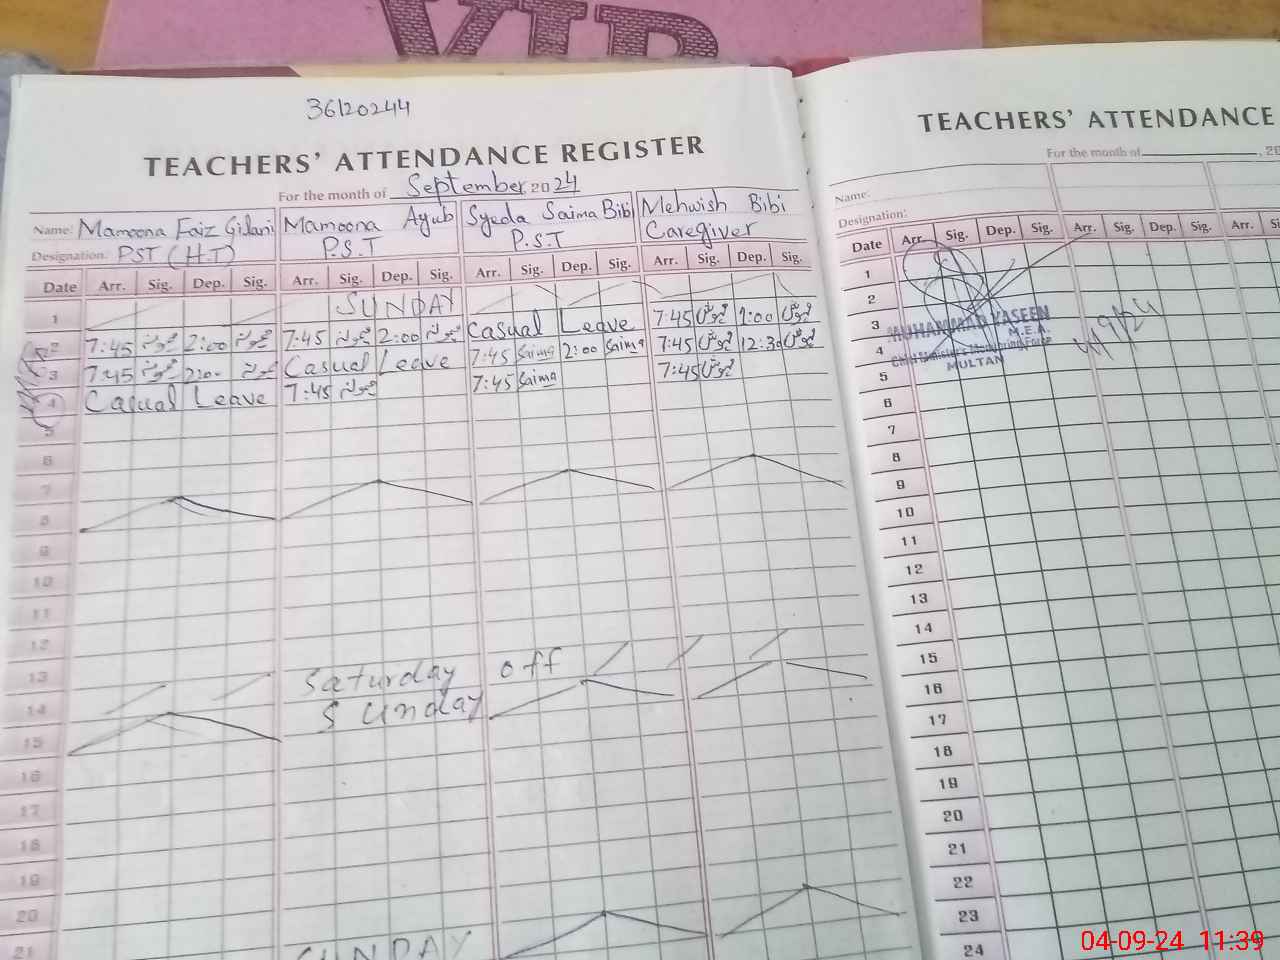 VIP
36120244
TEACHERS' ATTENDANCE REGISTER
For the month of September 2024
Name: Mamoona Faiz Gilani Mamoona Ayub Syeda Saima Bibi Mehwish Bibi
Designation: PST (H.T) P.S.T P.S.T Caregiver
Date Arr. Sig. Dep. Sig. Arr. Sig. Dep. Sig. Arr. Sig. Dep. Sig. Arr. Sig. Dep. Sig.
1 SUNDAY
2 7:45 2:00 7:45 2:00 Casual Leave 7:45 2:00
3 7:45 2:00 Casual Leave 7:45 Saima 2:00 Saima 7:45 12:30
4 Casual Leave 7:45 7:45 Saima 7:45
5
6
7
8
9
10
11
12
13
14 Saturday off
15 Sunday
16
17
18
19
20
21 SUNDAY
TEACHERS' ATTENDANCE
For the month of , 20
Name:
Designation:
Date Arr. Sig. Dep. Sig. Arr. Sig. Dep. Sig. Arr. Si
1
2
3 MUHAMMAD YASEEN
M.E.A.
4 Chief Minister's Monitoring Force
MULTAN
4/9/24
5
6
7
8
9
10
11
12
13
14
15
16
17
18
19
20
21
22
23
24
04-09-24 11:39